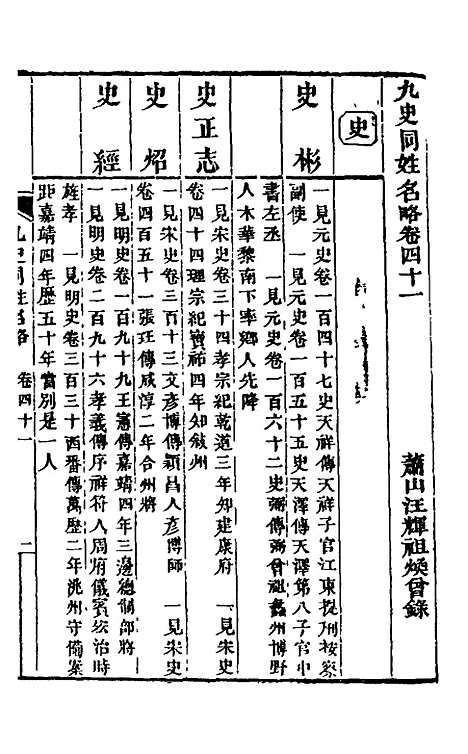 九史同姓名略卷四十一
蕭山汪輝祖煥曾錄
史
史彬
一見元史卷一百四十七史天祥傳天祥子官江東提刑按察
副使　一見元史卷一百五十五史天澤傳天澤第八子官中
書左丞　一見元史卷一百六十二史弼傳弼曾祖蠡州博野
人木華黎南下率鄉人先降
史正志
一見宋史卷三十四孝宗紀乾道三年知建康府　一見宋史
卷四十四理宗紀寶祐四年知敘州
史炤
一見宋史卷三百十三文彥博傳潁昌人彥博師　一見宋史
卷四百五十一張珏傳咸淳二年合州將
史經
一見明史卷一百九十九王憲傳嘉靖四年三邊總制部將
一見明史卷二百九十六孝義傳序祥符人周府儀賓宏治時
旌孝　一見明史卷三百三十西番傳萬歷二年洮州守備案
距嘉靖四年歷五十年當別是一人
九史同姓名略　卷四十一　一